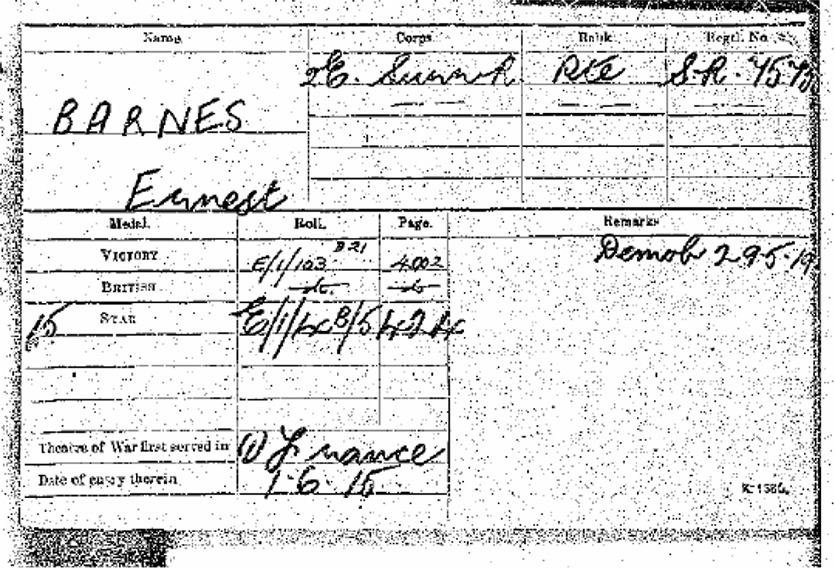 Name. Corps. Rank. Regtl. No.
2/E. Surr. R. Pte S.R. 7575
BARNES
Ernest
Medal. Roll. Page. Remarks
VICTORY E/1/103 B21 4002 Demob 29.5.19
BRITISH -do- -do-
15 STAR E/1/4 B/5 424
Theatre of War first served in (1) France
Date of entry therein 1.6.15
K. 1380.